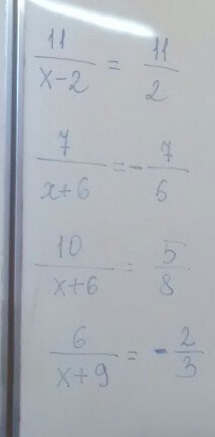 11/(x-2) = 11/2
7/(x+6) = -7/5
10/(x+6) = 5/8
6/(x+9) = -2/3